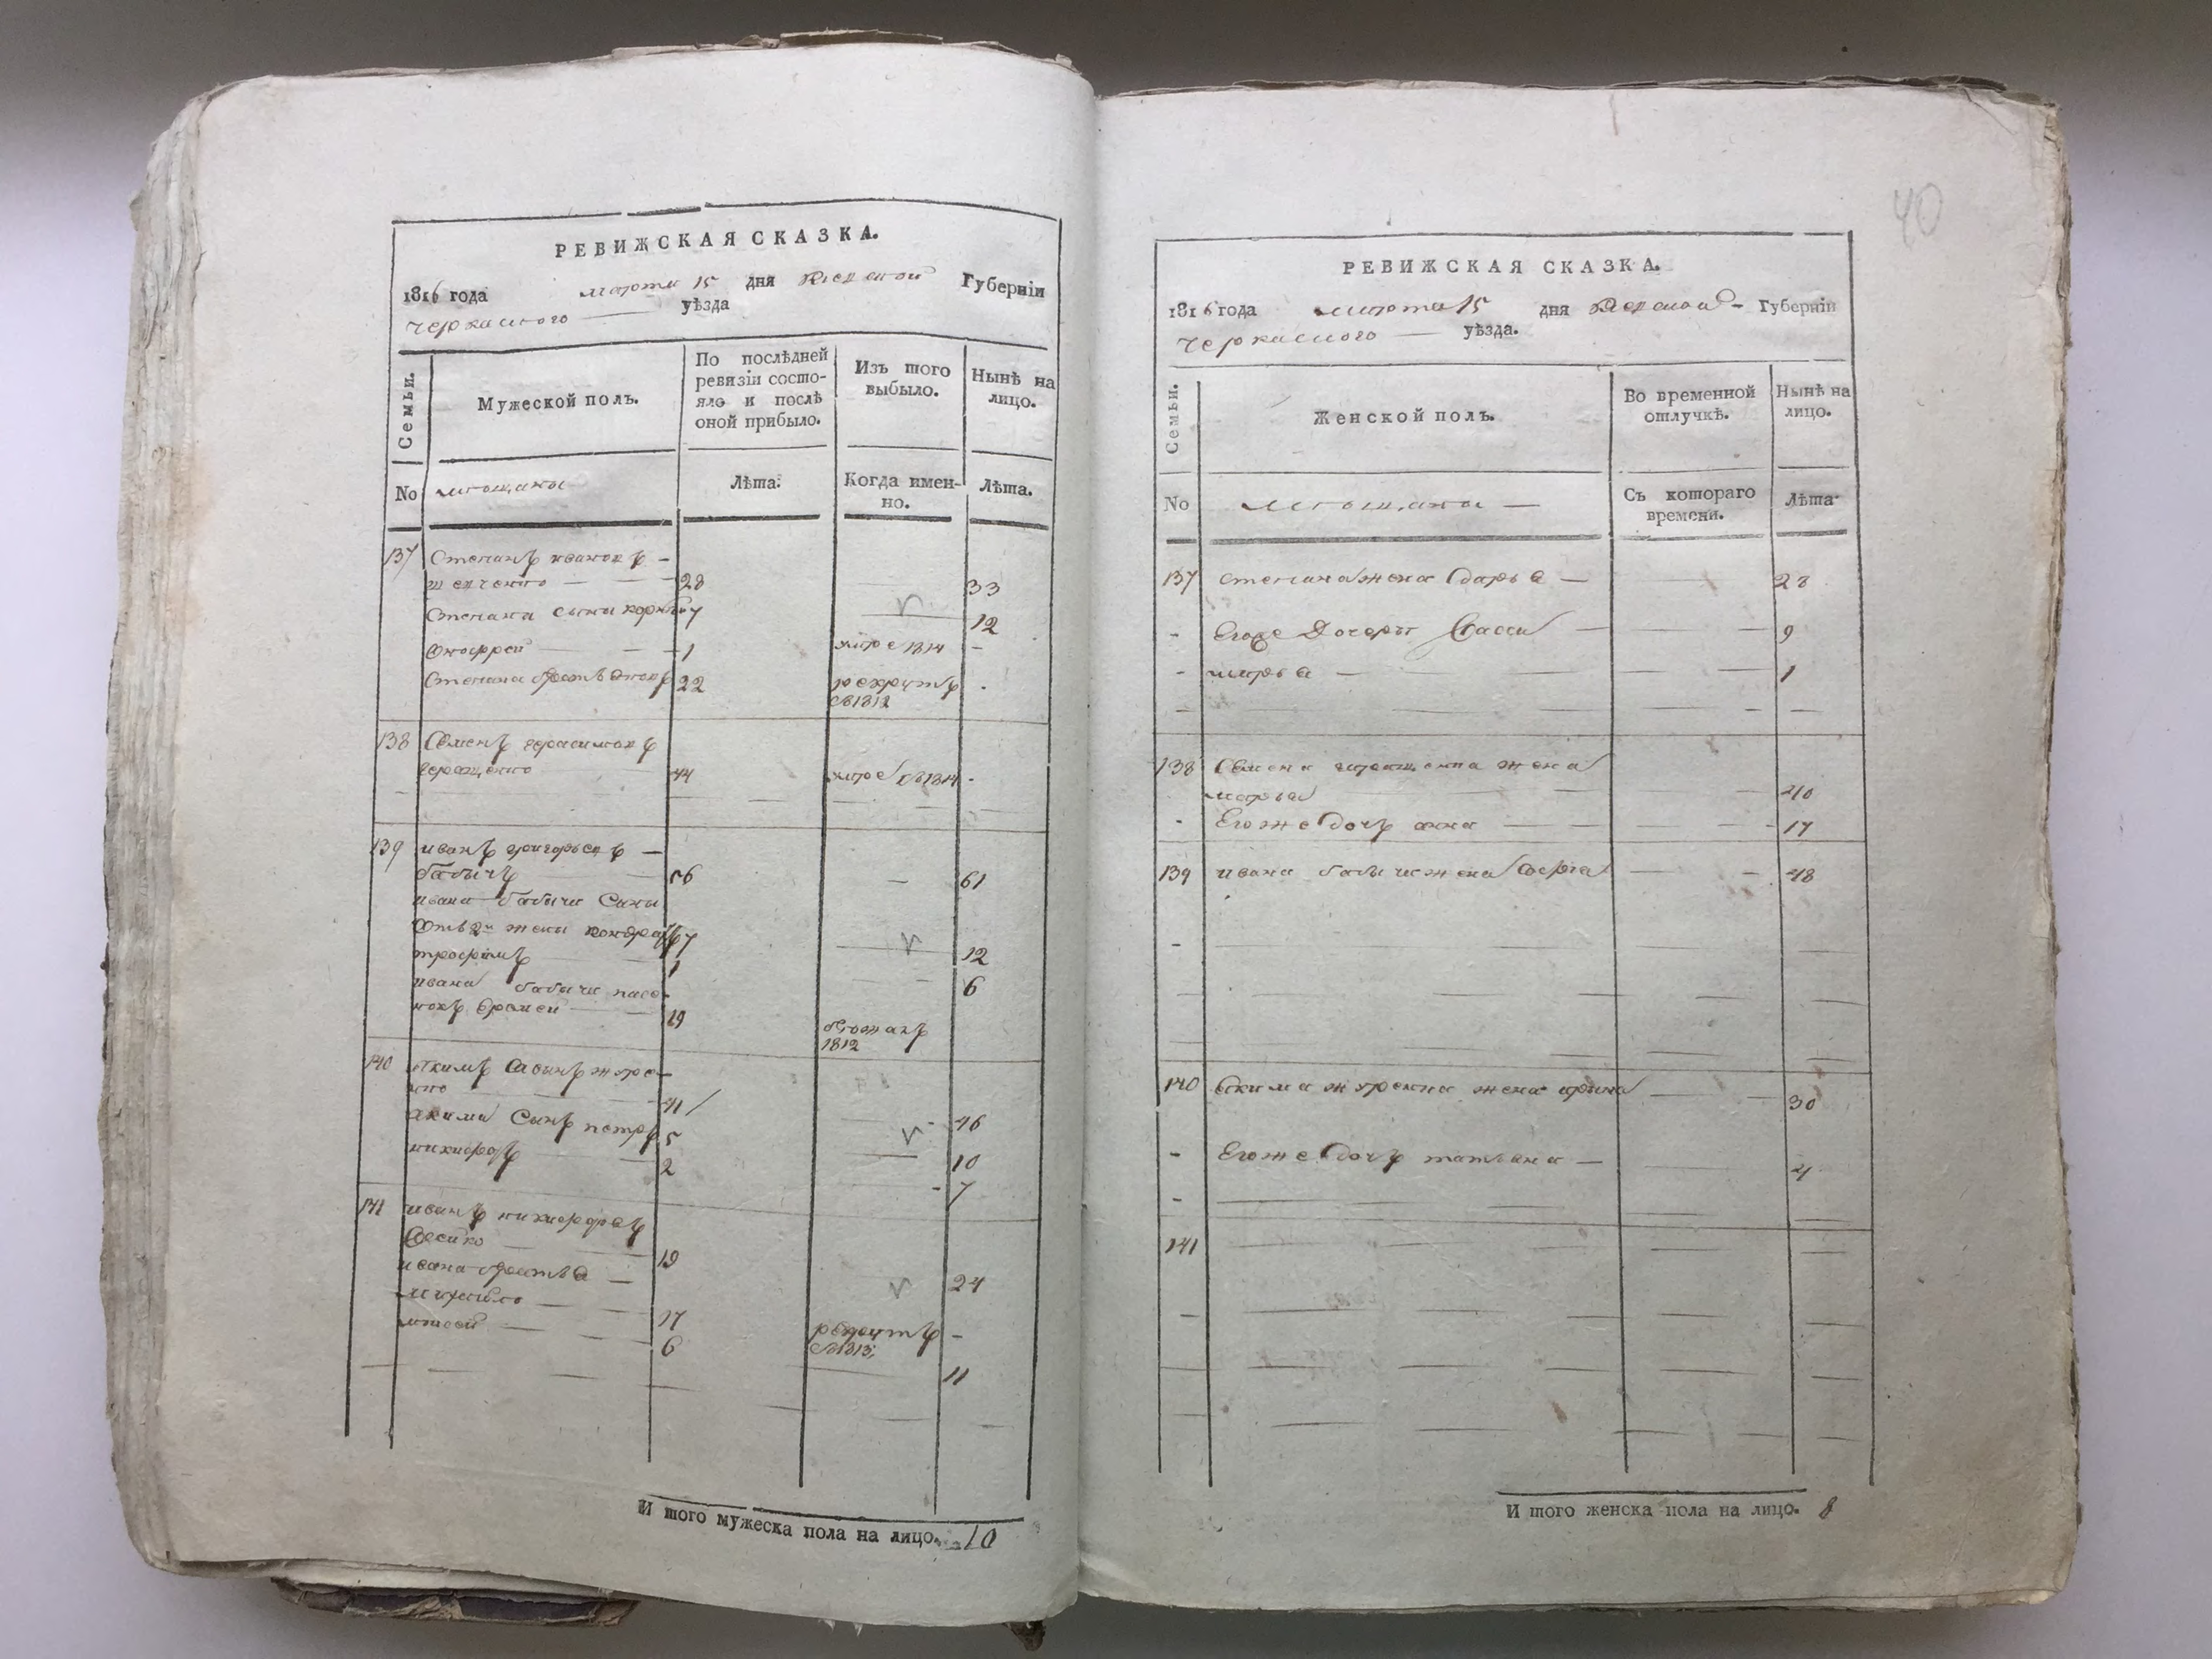 РЕВИЖСКАЯ СКАЗКА.
1816 года марта 15 дня Киевской Губерніи
черкаского уѣзда
Семьи.
Мужеской полъ.
По послѣдней ревизіи состояло и послѣ оной прибыло.
Изъ того выбыло.
Нынѣ на лицо.
No мещане
Лѣта.
Когда именно.
Лѣта.
137 Степанъ ивановъ
28 33
Степана сынъ 7 12
Онофрей 1 умре 1814 -
Степана братъ 22 рекрутъ
въ 1812
138 Семенъ герасимовъ
геращенко 44 умре въ 1814 -
139 иванъ григорьевъ
бабычъ 56 61
ивана бабича Сыны
Отъ 2й жены кондратъ 7 12
трофимъ 1 6
ивана бабичи пасы-
нокъ Еремей 19 бѣжалъ
1812
140 Якимъ
41 46
Акима Сынъ петръ 5 10
никифоръ 2 7
141 иванъ никифоровъ
19 24
ивана братья
михайло 17 рекрутъ -
въ 1813
6 11
И того мужеска пола на лицо. 10
40
РЕВИЖСКАЯ СКАЗКА.
1816 года марта 15 дня Киевской Губерніи
черкаского уѣзда.
Семьи.
Женской полъ.
Во временной отлучкѣ.
Нынѣ на лицо.
No мещане
Съ котораго времени.
Лѣта
137 степана жена Дарья 28
Его же Дочери 9
марья 1
138 Семена геращенка жена
марья 40
Его же Дочь анна 17
139 ивана бабычи жена 48
140 Акима жена арина 30
Его же Дочь татьяна 4
141
И того женска пола на лицо. 8